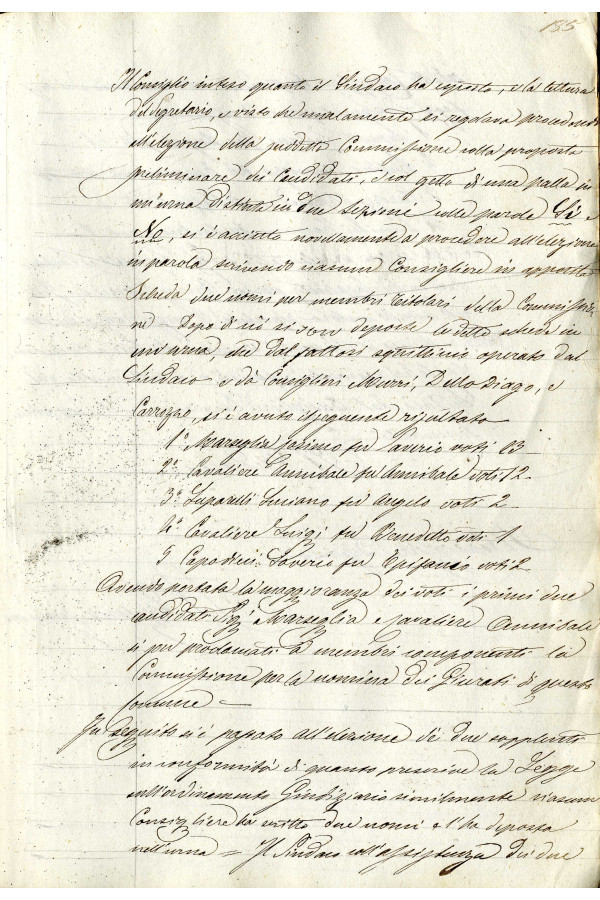 185
Il Consiglio inteso quanto il Sindaco ha esposto, e la lettura
del Segretario, e visto che malamente si regolava procedendo
all'elezione della suddetta Commissione colla proposta
preliminare dei Candidati, e col getto di una palla in
un'urna distinta in due sezioni colle parole Sì e
No, si è accinto novellamente a procedere all'elezione
in parola scrivendo ciascun Consigliere in apposita
Scheda due nomi per membri titolari della Commissio-
ne - Dopo di ciò si son deposte le dette schede in
un'urna, che dal fattosi squittinio operato dal
Sindaco e da Consiglieri Murri, Dello Diago, e
Carrozzo, si è avuto il seguente risultato
1° Marseglia Cosimo fu Saverio voti 13
2° Cavaliere Annibale fu Annibale voti 12
3° Luparelli Luciano fu Angelo voti 2
4° Cavaliere Luigi fu Benedetto voti 1
5 Capodieci Saverio fu Epifanio voti 2
Avendo portata la maggioranza dei voti i primi due
candidati Sigi Marseglia e Cavaliere Annibale
si son proclamati a membri componenti la
Commissione per la nomina dei Giurati di questo
Comune -
In seguito si è passato all'elezione di due supplenti
in conformità di quanto prescrive la Legge
sull'ordinamento Giudiziario similmente ciascun
Consigliere ha scritto due nomi e l'ha deposta
nell'urna = Il Sindaco coll'assistenza dei due